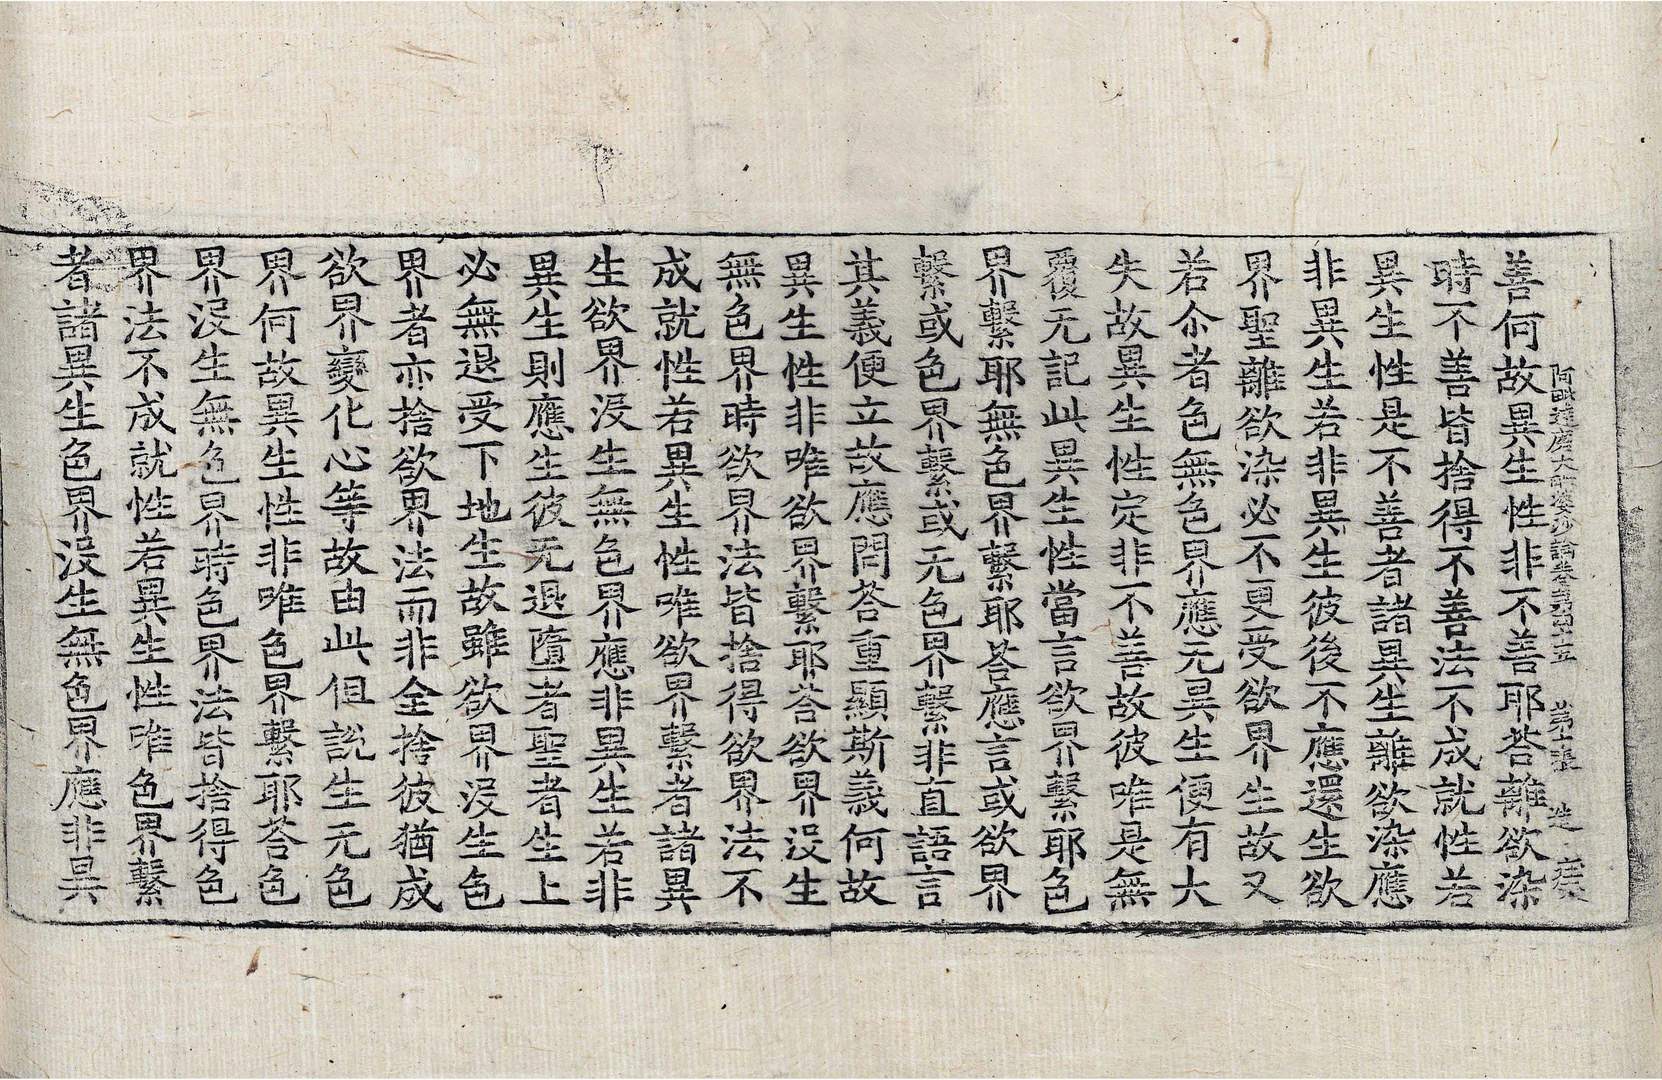 阿毗達磨大毗婆沙論卷第四十五 第七張 造
善何故異生性非不善耶荅離欲染
時不善皆捨得不善法不成就性若
異生性是不善者諸異生離欲染應
非異生若非異生彼後不應還生欲
界聖離欲染必不更受欲界生故又
若尒者色無色界應无異生便有大
失故異生性定非不善故彼唯是無
覆无記此異生性當言欲界繫耶色
界繫耶無色界繫耶荅應言或欲界
繫或色界繫或无色界繫非直語言
其義便立故應問荅重顯斯義何故
異生性非唯欲界繫耶荅欲界沒生
無色界時欲界法皆捨得欲界法不
成就性若異生性唯欲界繫者諸異
生欲界沒生無色界應非異生若非
異生則應生彼无退墮者聖者生上
必無退受下地生故雖欲界沒生色
界者亦捨欲界法而非全捨彼猶成
欲界變化心等故由此但說生无色
界何故異生性非唯色界繫耶荅色
界沒生無色界時色界法皆捨得色
界法不成就性若異生性唯色界繫
者諸異生色界沒生無色界應非異